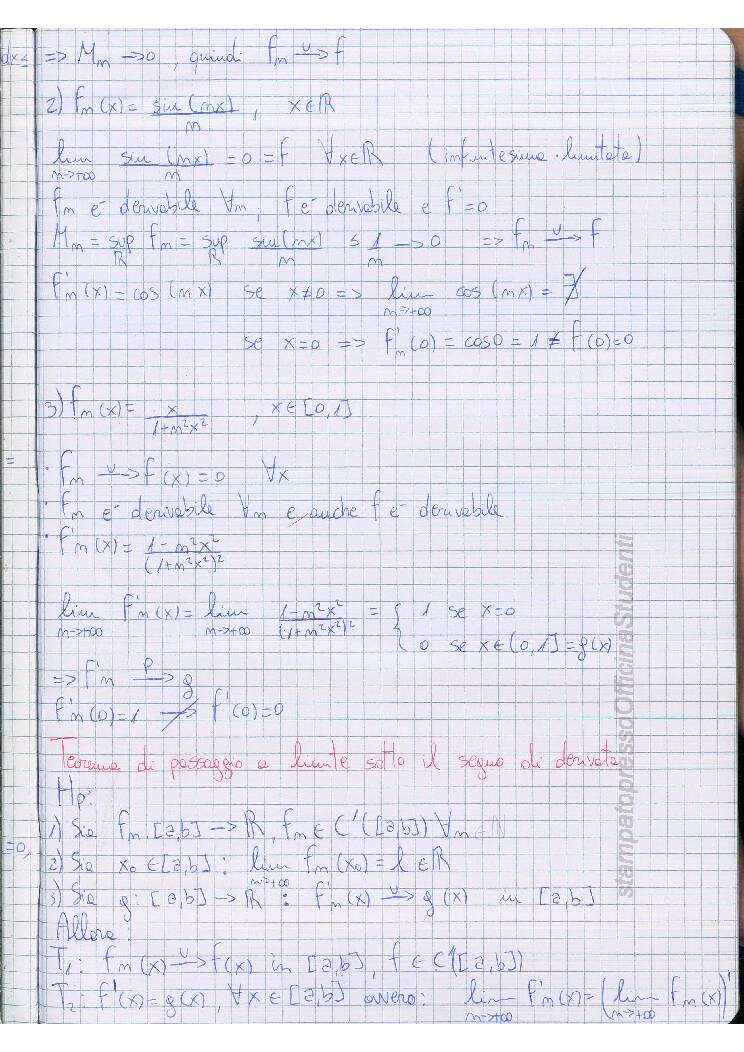 dx ≤
=> Mn → 0 , quindi fn –u→ f
2) fn(x) = sin(nx)/n , x∈ℝ
lim n→+∞ sin(nx)/n = 0 = f ∀x∈ℝ (infinitesima · limitata)
fn è derivabile ∀n, f è derivabile e f' = 0
Mn = sup ℝ fn = sup ℝ sin(nx)/n ≤ 1/n → 0 => fn –u→ f
f'n(x) = cos(nx) se x≠0 => lim n→+∞ cos(nx) = ∄
se x=0 => f'n(0) = cos0 = 1 ≠ f(0)=0
3) fn(x) = x/(1+n²x²) , x∈[0,1]
=
· fn –u→ f(x) = 0 ∀x
· fn è derivabile ∀n e anche f è derivabile
· f'n(x) = (1-n²x²)/(1+n²x²)²
lim n→+∞ f'n(x) = lim n→+∞ (1-n²x²)/(1+n²x²)² = { 1 se x=0
0 se x∈(0,1] = g(x)
=> f'n –p→ g
f'n(0)=1 ↛ f'(0)=0
Teorema di passaggio a limite sotto il segno di derivata
Hp:
1) Sia fn: [a,b] → ℝ, fn ∈ C'([a,b]) ∀n∈ℕ
=0,
2) Sia x₀ ∈[a,b] : lim n→+∞ fn(x₀) = l ∈ℝ
3) Sia g: [a,b] → ℝ : f'n(x) –u→ g(x) in [a,b]
Allora:
T₁: fn(x) –u→ f(x) in [a,b], f ∈ C'([a,b])
T₂: f'(x) = g(x), ∀x∈[a,b] ovvero: lim n→+∞ f'n(x) = (lim n→+∞ fn(x))'
stampatopressoOfficinaStudenti